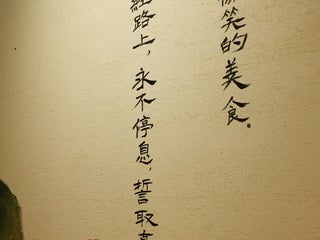 笑的美食。
經路上，永不停息，誓取真